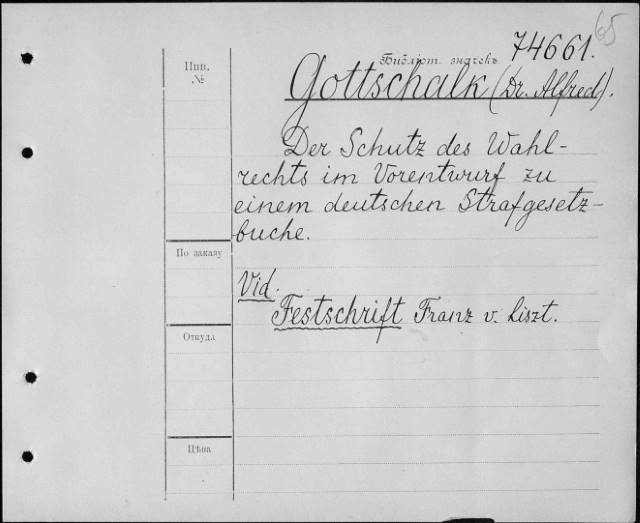 65
Библіот. значекъ
74661.
Инв.
№
Gottschalk (Dr. Alfred).
Der Schutz des Wahl-
rechts im Vorentwurf zu
einem deutschen Strafgesetz-
buche.
По заказу
Vid.
Festschrift Franz v. Liszt.
Откуда
Цѣна